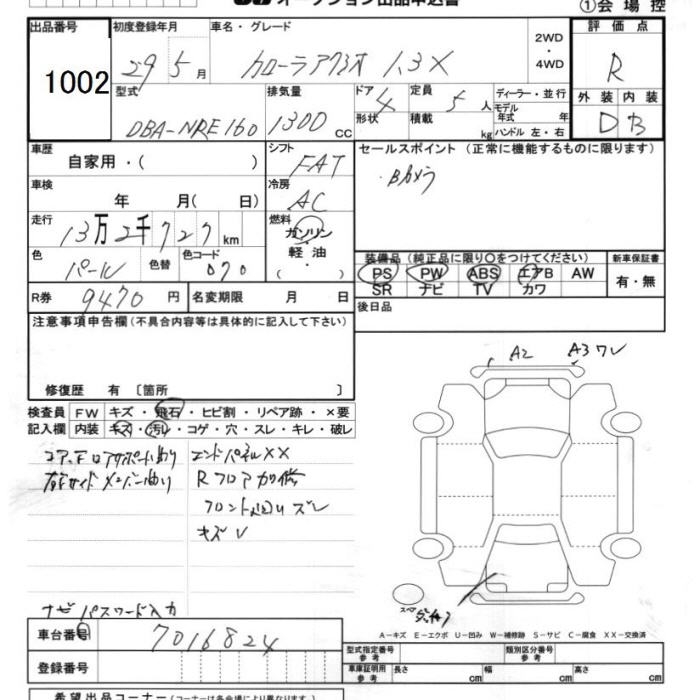 オークション出品申込書
①会場控
出品番号 初度登録年月 車名・グレード 2WD ・ 4WD 評価点
1002 29年5月 カローラアクシオ 1.3X R
型式 排気量 ドア 4 定員 5人 ディーラー・並行 外装 内装
DBA-NRE160 1300cc 形状 積載 kg モデル年式 年 ハンドル 左・右 D B
車歴 自家用・( ) シフト FAT セールスポイント (正常に機能するものに限ります)
車検 年 月( 日) 冷房 AC ・Bカメラ
走行 13万2千727km 燃料 ガソリン・軽油・( )
色 パール 色替 色コード 070
装備品(純正品に限り〇をつけてください) 新車保証書
PS PW ABS エアB AW 有・無
SR ナビ TV カワ
R券 9470円 名変期限 月 日 後日品
注意事項申告欄(不具合内容等は具体的に記入して下さい)
修復歴 有 〔箇所 〕
A2 A3 ワレ
検査員記入欄 FW キズ・飛石・ヒビ割・リペア跡・×要
内装 キズ・汚れ・コゲ・穴・スレ・キレ・破レ
コア, F ロアサポート曲り エンドパネルXX
右Fサイドメンバー曲り Rフロア
フロント廻りズレ
キズ V
ナビパスワード入力
A-キズ E-エクボ U-凹み W-補修跡 S-サビ C-腐食 XX-交換済
車台番号 7016824
型式指定番号 参考 類別区分番号 参考
登録番号 車庫証明用 参考 長さ cm 幅 cm 高さ cm
希望出品コーナー(コーナーは各会場により異なります)